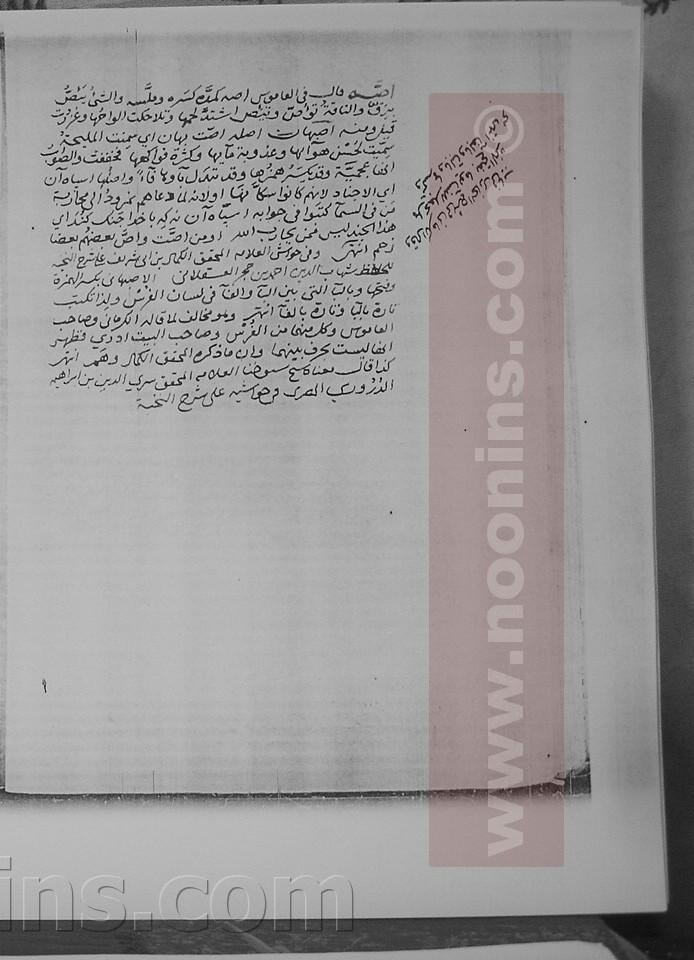 اصَّه قال في القاموس اصه كمدَّه كسره وملَّسه والشئ يَئِصُّ
برق والناقة تؤصّ وتئِصّ اشتدّ لحمها وتلاحكت الواحها وغزرت
قيل ومنه اصبهان اصله اصَّت بهان اي سمنت المليحة
سمّيت لحسن هوآئها وعذوبة مآئها وكثرة فواكهها فخففت والصواب
انها عجمية وقد يكسر همزها وقد تبدل بآوها فاءً واصلها اسباه آن
اي الاجناد لانهم كانوا سكانها او لانه لما دعاهم نمرود الى محاربة
من في السمآ كتبوا في جوابه اسباه آن نه كه باخدا جنك كنند اي
هذا الجند ليس ممن يحارب الله او من اصَّت واصّ بعضهم بعضا
زحم انتهى وفي حواش العلامة المحقق الكمال بن ابي شريف على شرح النخبة
للحافظ شهاب الدين احمد بن حجر العسقلاني الاصبهاني بكسر الهمزة
وفتحها وبالبآ التي بين البآ والفآ في لسان الفرس ولذا تكتب
تارة بالبآ وتارة بالفآ انتهى وهو مخالف لما قاله الكرماني وصاحب
القاموس وكل منهما من الفرس وصاحب البيت ادرى فظهر
انها ليست بحرف بينهما وان ما ذكره المحقق الكمال وهم انتهى
كذا قال شيخنا العلامه المحقق سري الدين بن ابراهيم
الدروري المصري في حواشيه على شرح النخبة
www.noonins.com ©
ins.com